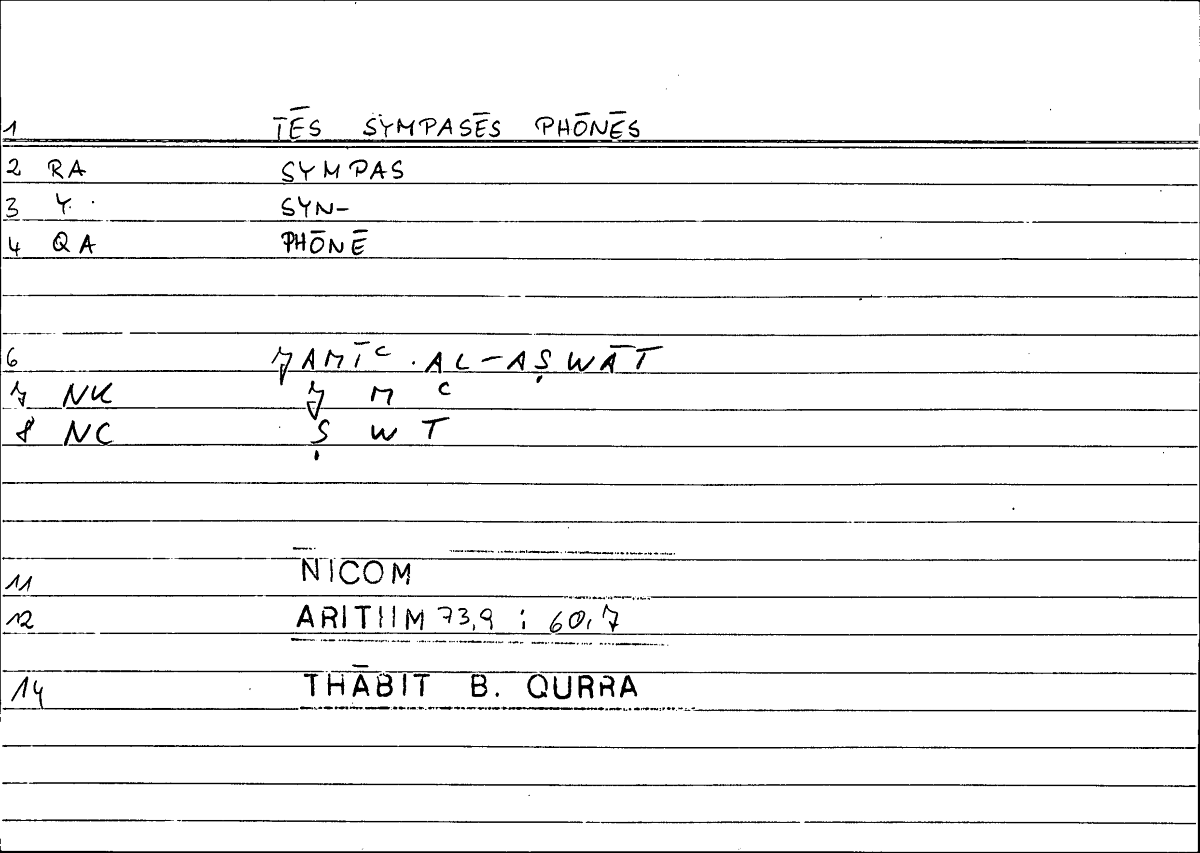 1 TĒS SYMPASĒS PHŌNĒS
2 RA SYMPAS
3 Y. SYN-
4 QA PHŌNĒ
6 JAMĪC AL-AṢWĀT
7 NK J M C
8 NC Ṣ W T
11 NICOM
12 ARITHM 73,9 : 60,7
14 THĀBIT B. QURRA